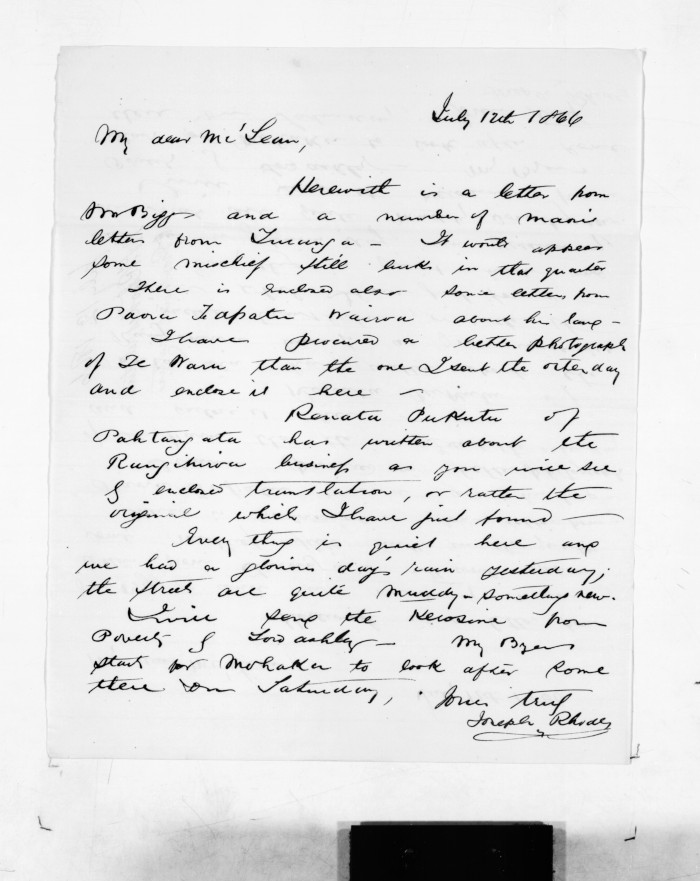 July 12th 1866
My dear Mc'Lean,
Herewith is a letter from
Biggs and a number of maori
letters from Turanga - It would appear
some mischief still lurks in that quarter
There is enclosed also some letters from
Paora Te Apatu Wairoa about his land -
I have procured a better photograph
of Te Waru than the one I sent the other day
and enclose it here -
Renata Pukutu of
Pahtangata has written about the
Rangihiroa business as you will see
by enclosed translation, or rather the
original which I have just found -
Every thing is quiet here and
we had a glorious day's rain yesterday;
the streets are quite muddy - something new -
I will send the Kerosine from
Poverty by Lord ashley - Mr Byers
starts for Mohaka to look after some
there on Saturday,
Yours truly
Joseph Rhodes